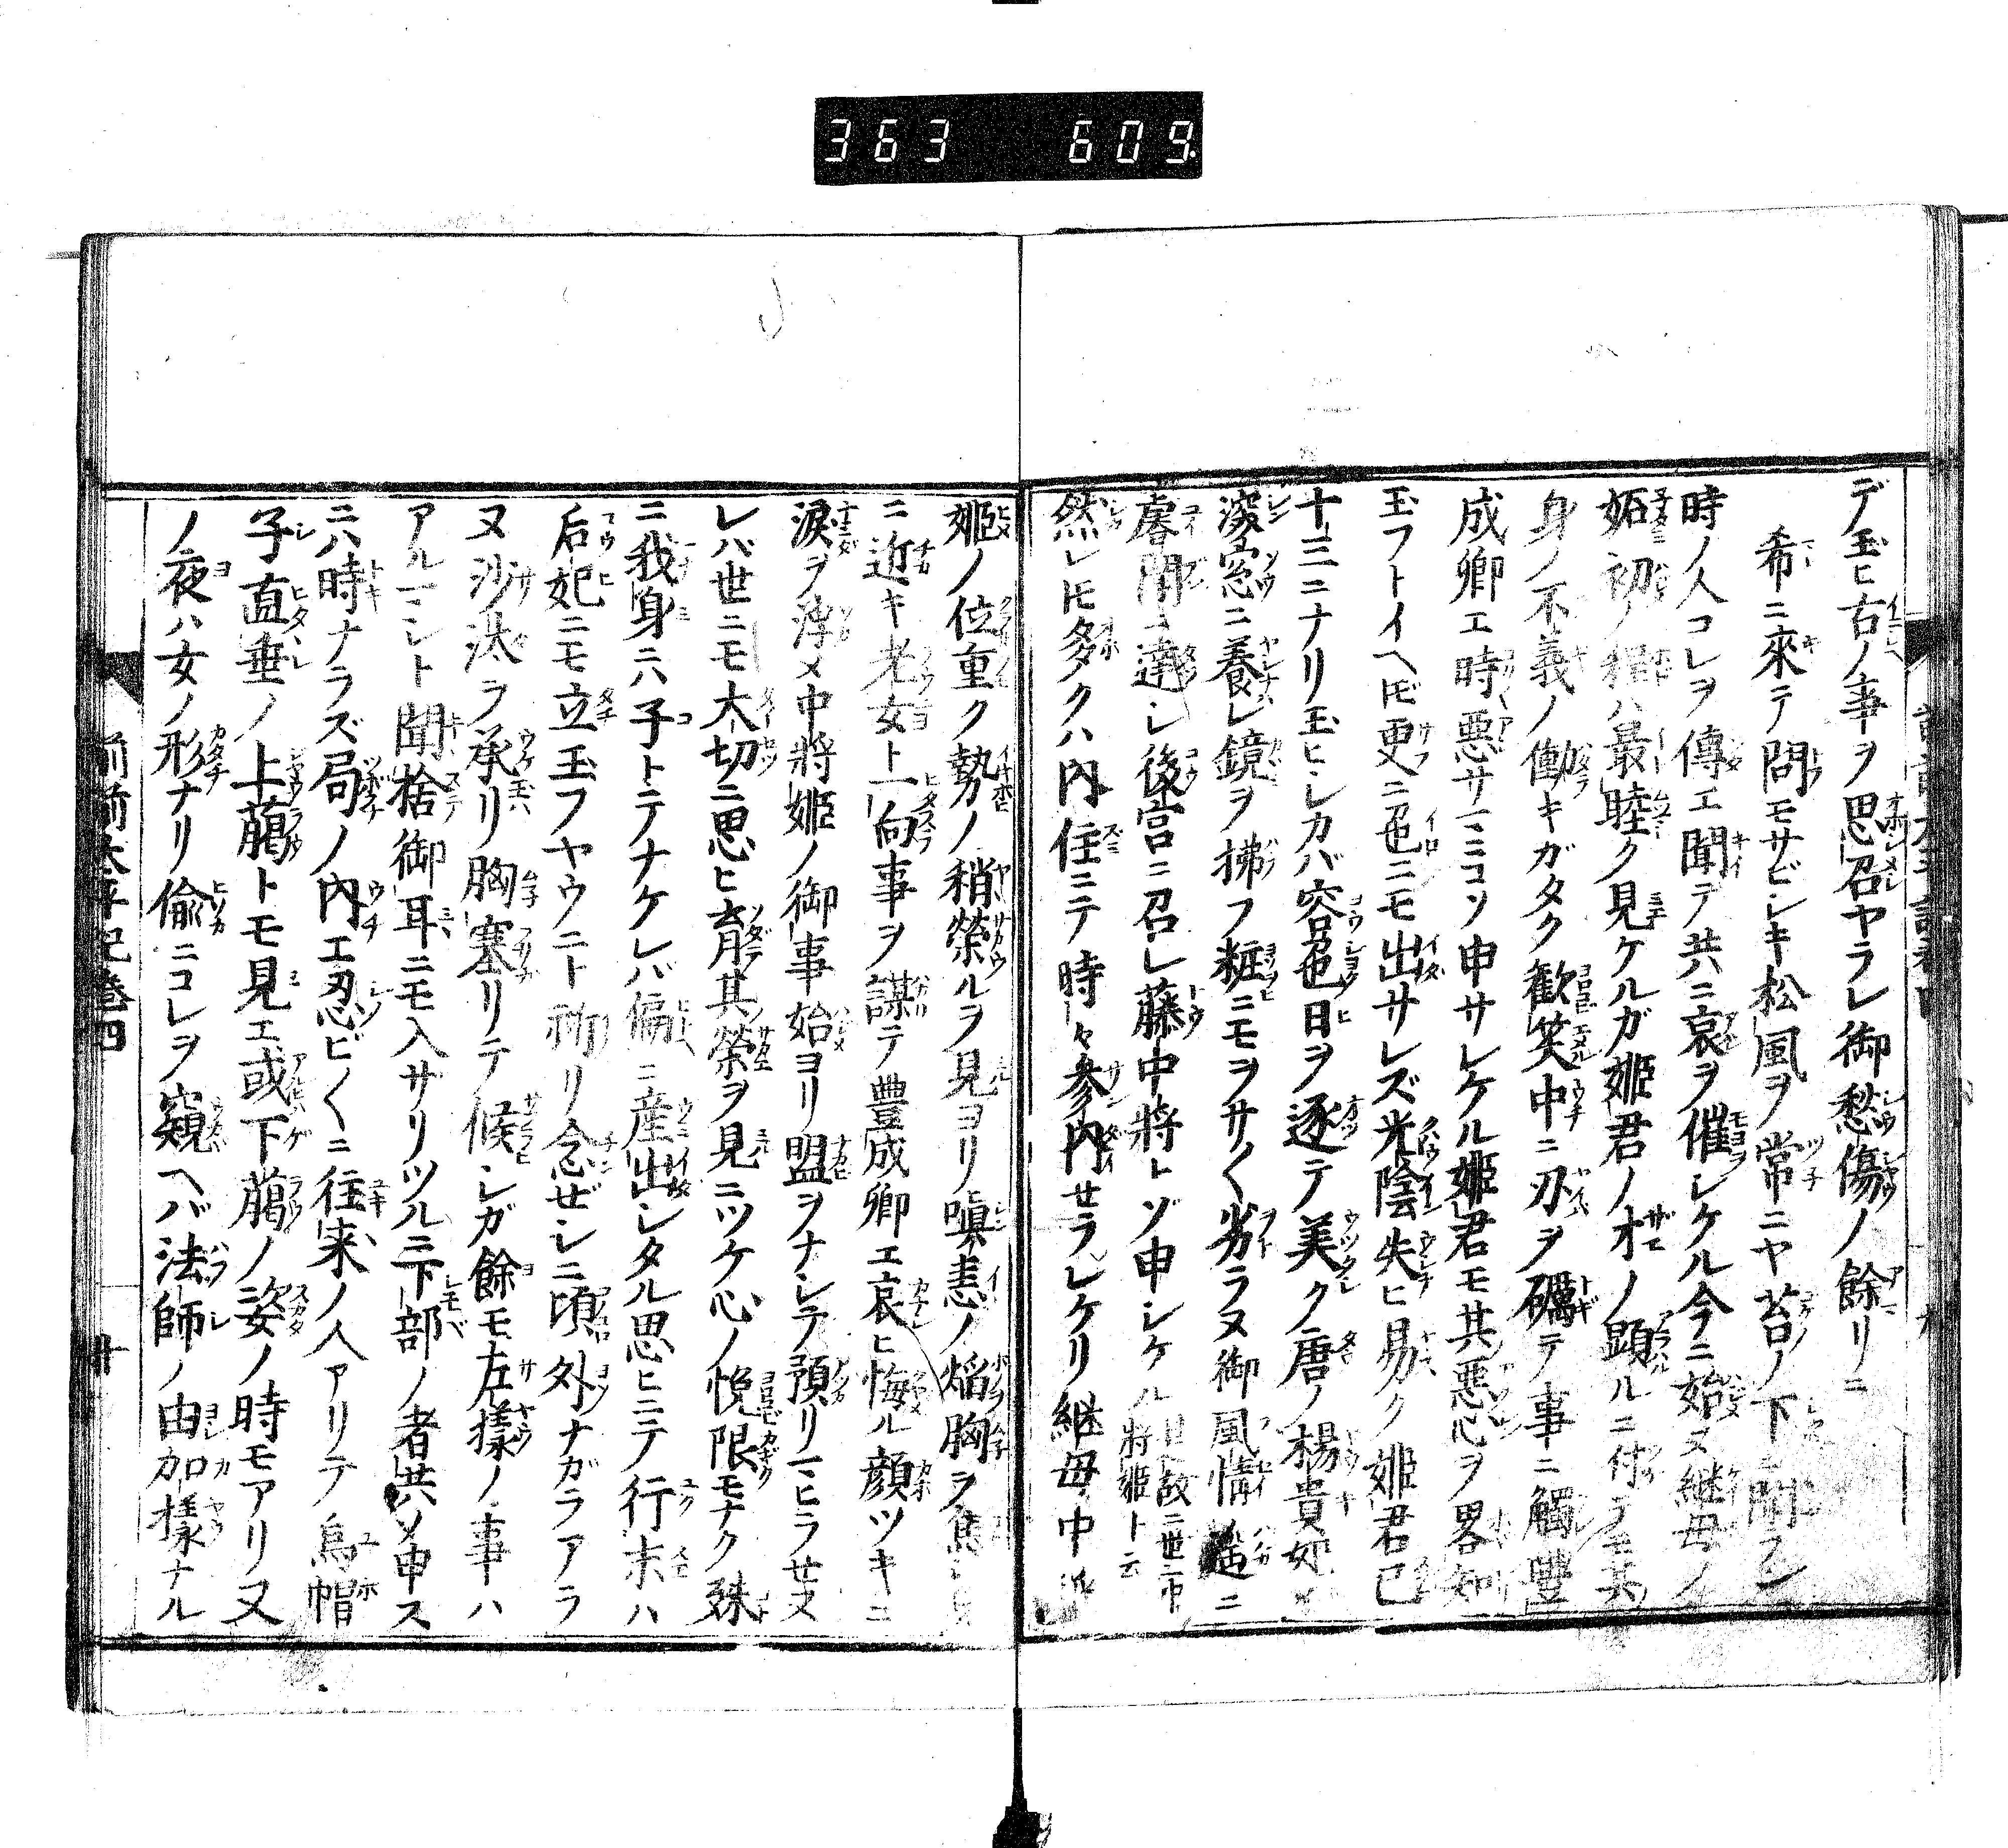 363 609.
デ玉ヒ古ノ事ヲ思召ヤラレ御愁傷ノ餘リニ
希ニ來テ問モサビシキ松風ヲ常ニヤ苔ノ下ニ聞ラン
時ノ人コレヲ傳エ聞テ共ニ哀ヲ催シケル今ニ始ヌ継母ノ
妬初ノ程ハ最睦ク見ケルガ姫君ノ才ノ顕ルニ付テモ其
身ノ不義ノ働キガタク歓笑中ニ刃ヲ礪テ事ニ觸豐
成卿エ時〻悪サマニコソ申サレケル姫君モ其悪心ヲ畧知
玉フトイヘ𪜈更ニ色ニモ出サレズ光陰失ヒ易ク姫君已
十三ニナリ玉ヒシカバ容色日ヲ逐テ美ク唐ノ楊貴妃ノ
深窓ニ養レ鏡ヲ拂フ粧ニモヲサ〱劣ラヌ御風情ノ
睿聞ニ達シ後宮ニ召レ藤中將トゾ申シケル
故ニ世ニ中
將姫ト云
然レ𪜈多クハ内住ニテ時々参内せラレケリ継母中
姫ノ位重ク勢ノ稍榮ルヲ見ヨリ嗔恚ノ焔胸ヲ焦シ
ニ近キ老女ト一向事ヲ謀テ豊成卿エ哀ヒ悔ル顔ツキニ
涙ヲ浮メ中將姫ノ御事始ヨリ盟ヲナシテ預リマヒラせヌ
レバ世ニモ大切ニ思ヒ育其榮ヲ見ニツケ心ノ悦限モナク殊
ニ我身ニハ子トテナケレバ偏ニ産出シタル思ヒニテ行末ハ
后妃ニモ立玉フヤウニト祈リ念ぜシニ頃外ナガラアラ
ヌ沙汰ヲ承リ胸塞リテ候シガ餘モ左様ノ事ハ
アルマシト聞捨御耳ニモ入サリツルニ下部ノ者共〆申ス
ニハ時ナラズ局ノ内エ忍ビ〱ニ往来ノ人アリテ烏帽
子直垂ノ上﨟トモ見エ或下﨟ノ姿ノ時モアリ又
ノ夜ハ女ノ形ナリ偸ニコレヲ窺ヘバ法師ノ由加様ナル
前前太平記巻四